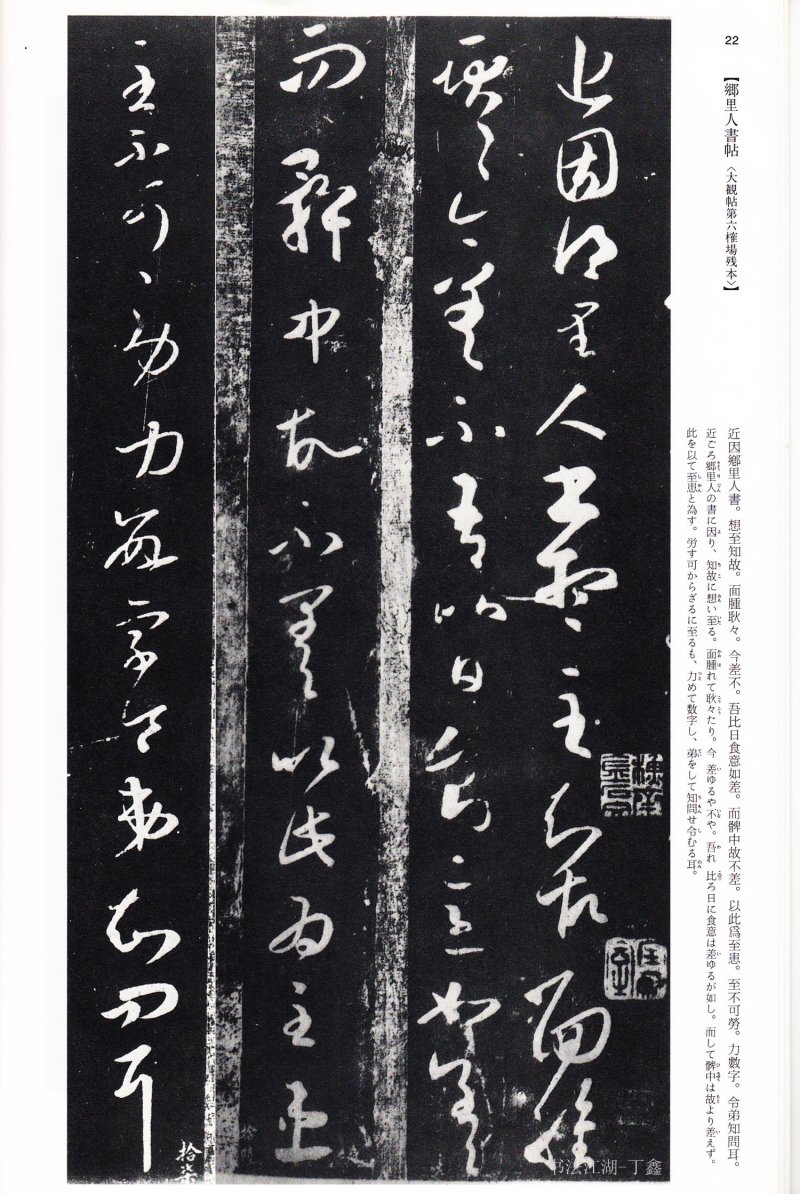 22
【郷里人書帖〈大観帖第六榷場残本〉】
近因郷里人書。想至知故。面腫耿々。今差不。吾比日食意如差。而髀中故不差。以此爲至患。至不可勞。力數字。令弟知問耳。
近ごろ郷里人の書に因り、知故に想い至る。面腫れて耿々たり。今 差ゆるや不や。吾れ 比ろ日に食意は差ゆるが如し。而して髀中は故より差えず。
此を以て至患と為す。労す可からざるに至るも、力めて数字し、弟をして知問せ令むる耳。
近因郷里人書想至知故面腫
耿々今差不吾比日食意如差
而髀中故不差以此爲至患
至不可々勞力數字令弟知問耳
拾柒
书法江湖-丁鑫